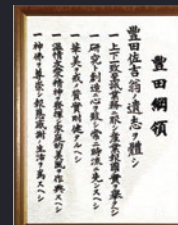 豊田綱領
豊田佐吉翁ノ遺志ヲ體シ
一 上下一致至誠業務ニ服シ産業報國ノ實ヲ擧クヘシ
一 研究ト創造ニ心ヲ致シ常ニ時流ニ先ンスヘシ
一 華美ヲ戒メ質實剛健タルヘシ
一 温情友愛ノ精神ヲ發揮シ家庭的美風ヲ作興スヘシ
一 神佛ヲ尊崇シ報恩感謝ノ生活ヲ爲スヘシ